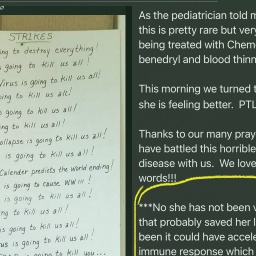 STRIKES
ng to destroy everything!
going to kill us all!
Virus is going to kill us all!
ing to kill us all!
s going to kill us all!
ing to kill us all!
ollapse is going to kill us all!
is going to kill us all!
Calender predicts the world ending!
is going to cause WW III!
is going to kill us all!
ng to kill us all!
is going to kill us all!
us is going to kill us all!
going to kill you...
As the pediatrician told m
this is pretty rare but very
being treated with Chem
benedryl and blood thinn
This morning we turned t
she is feeling better. PTL
Thanks to our many pray
have battled this horrible
disease with us. We love
words!!!
***No she has not been v
that probably saved her l
been it could have accele
immune response which